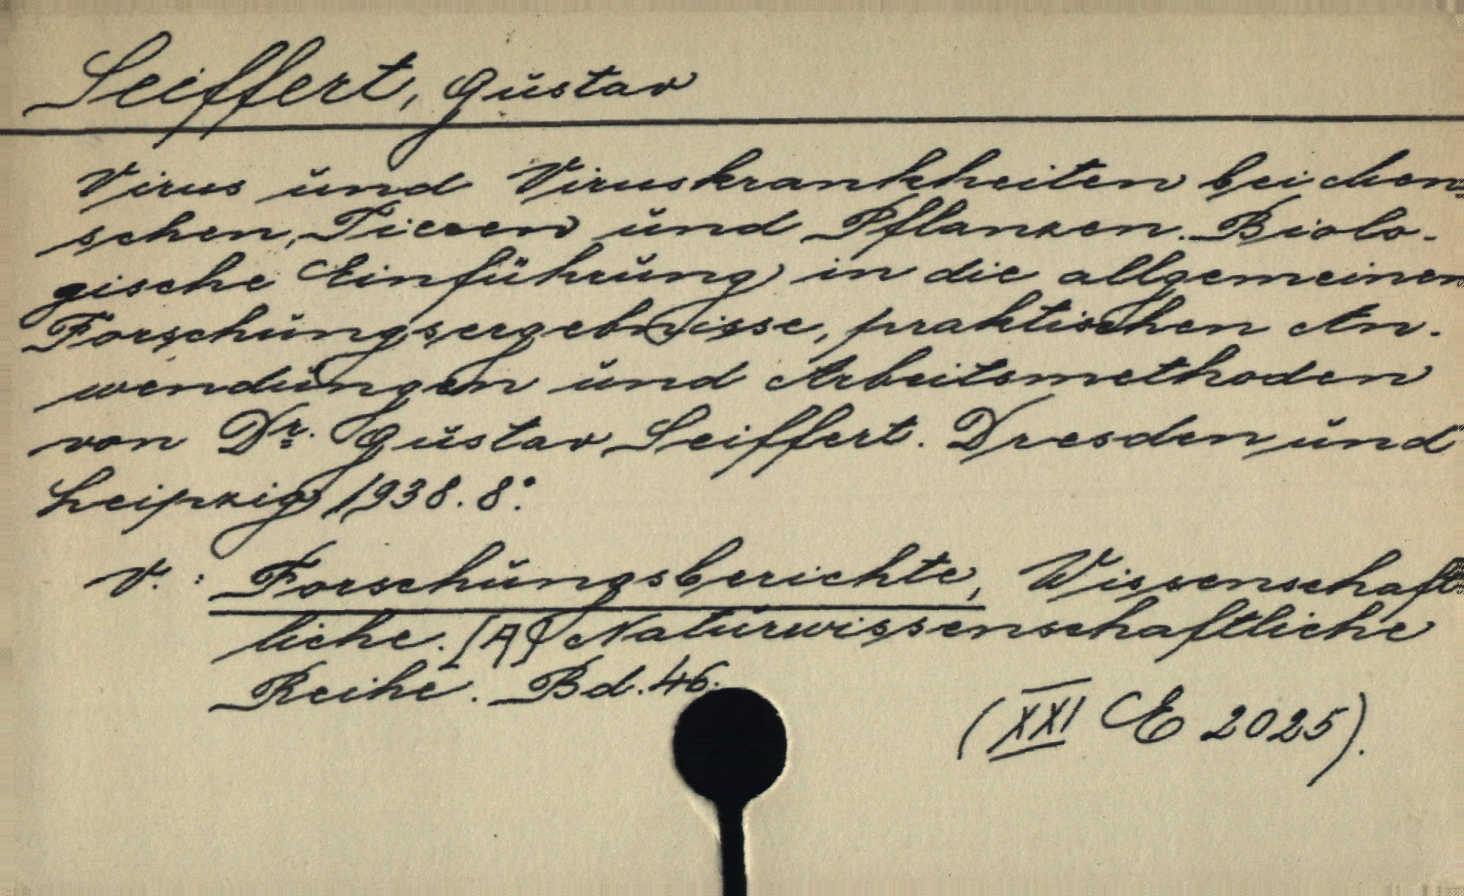 Seiffert, Gustav
Virus und Viruskrankheiten bei Men-
schen, Tieren und Pflanzen. Biolo-
gische Einführung in die allgemeinen
Forschungsergebnisse, praktischen An-
wendungen und Arbeitsmethoden
von Dr. Gustav Seiffert. Dresden und
Leipzig 1938. 8°.
V.: Forschungsberichte, Wissenschaft-
liche. [A] Naturwissenschaftliche
Reihe. Bd. 46.
(XXI E 2025).